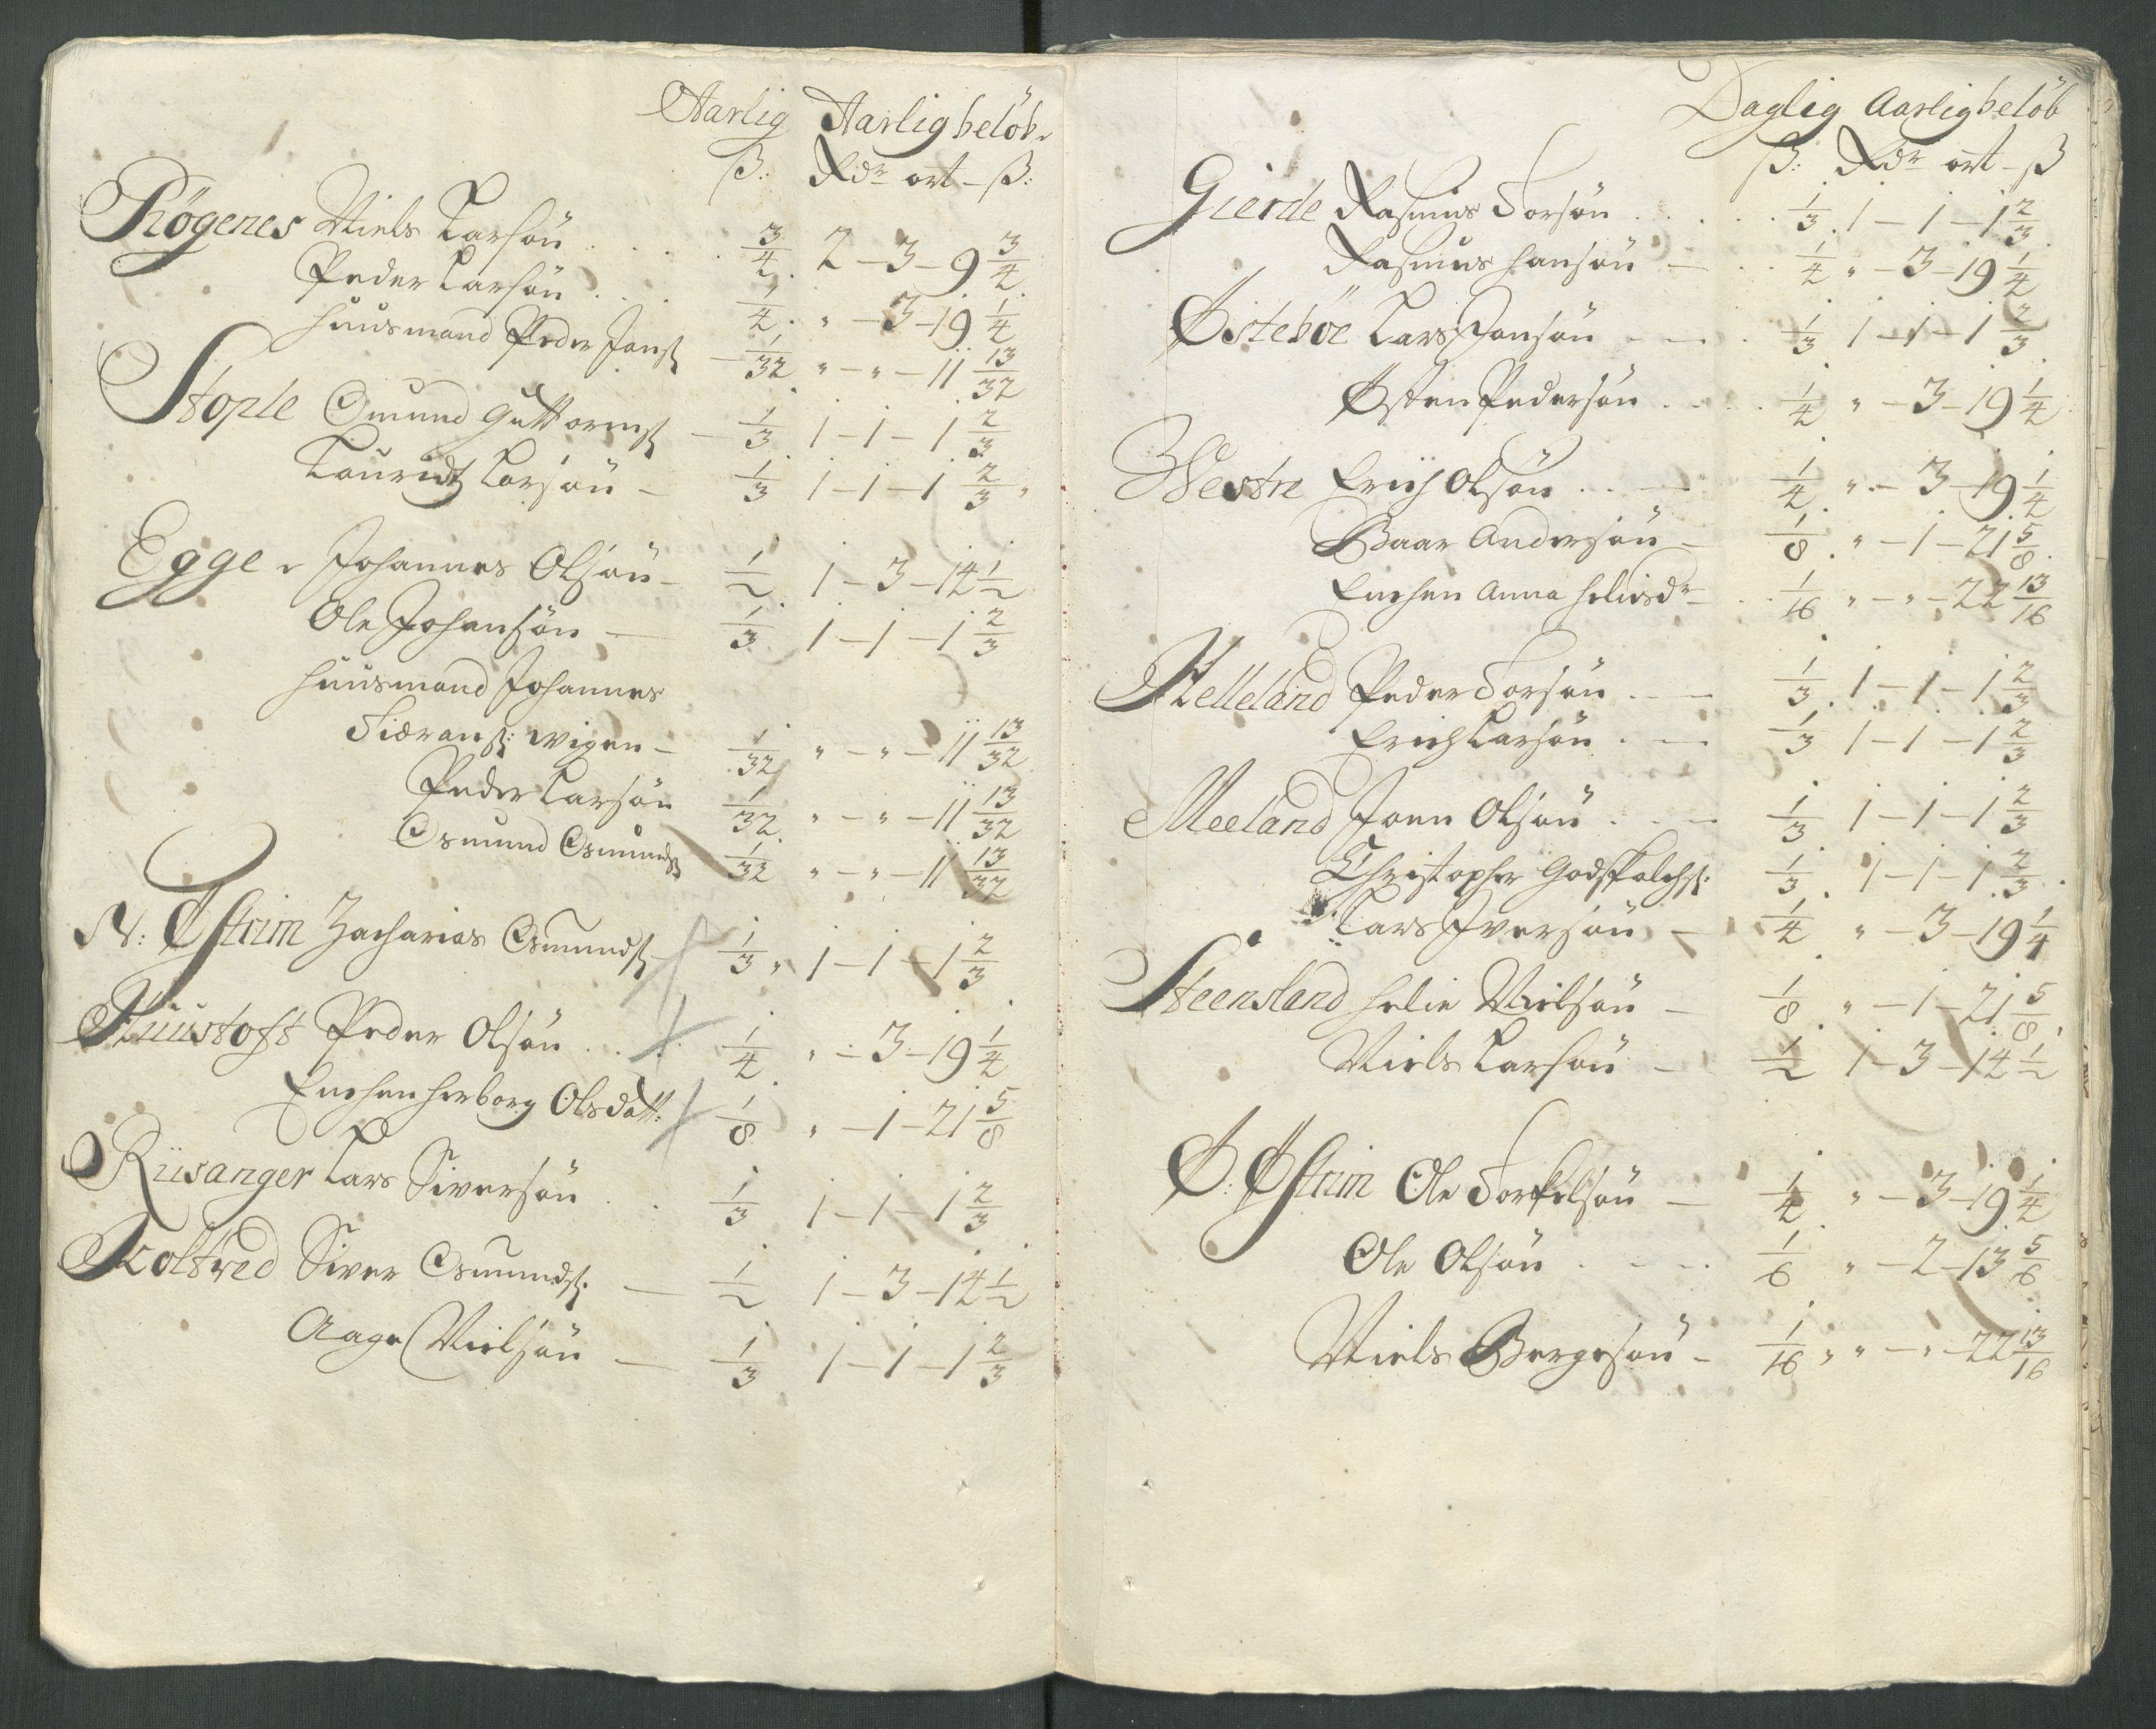 Aarlig Aarlig beløb.
ß: Rdr ort - ß:
Røgenes Niels Larsøn . . . 3/4. 2 - 3 - 9 3/4
Peder Larsøn . . . 1/4. " - 3 - 19 1/4
Huusmand Peder Jonsß - 1/32 " - " - 11 13/32
Stople Omund Guttormß - 1/3 1 - 1 - 1 2/3
Lauridtz Larsøn - 1/3 1 - 1 - 1 2/3
Egge Johannes Olsøn - 1/2 1 - 3 - 14 1/2
Ole Johansøn - 1/3 1 - 1 - 1 2/3
Huusmand Johannes
wigen - 1/32 " - " - 11 13/32
Peder Larsøn 1/32 " - " - 11 13/32
Osmund Osmundß 1/32 " - " - 11 13/32
N: Østrim Zacharias Osmundß 1/3 " 1 - 1 - 1 2/3
Huustoft Peder Olsøn . . 1/4 " - 3 - 19 1/4
Enchen Herborg Olsdatt: 1/8 " - 1 - 21 5/8
Riisanger Lars Siversøn . . 1/3 1 - 1 - 1 2/3
Koltved Siver Osmundß: - 1/2 1 - 3 - 14 1/2
Aage Nielsøn - 1/3 1 - 1 - 1 2/3
Daglig Aarlig beløb
ß: Rdr ort - ß
Gierde Rasmus Torsøn . . . . 1/3. 1 - 1 - 1 2/3
Rasmus Hansøn - . . 1/4 " - 3 - 19 1/4
Østebøe Lars Jonsøn - - . 1/3 1 - 1 - 1 2/3
Østen Pedersøn . . . 1/4 " - 3 - 19 1/4
Westre Erich Olsøn . . - 1/4 " - 3 - 19 1/4
Baar Andersøn - 1/8. " - 1 - 21 5/8
Enchen Anna Heliesdr - . 1/16 " - " - 22 13/16
Helleland Peder Torsøn . - - 1/3. 1 - 1 - 1 2/3
Erich Larsøn . - 1/3 1 - 1 - 1 2/3
Meeland Joen Olsøn . . - 1/3 1 - 1 - 1 2/3
Christopher Godskalchß: 1/3. 1 - 1 - 1 2/3
Lars Iversøn - 1/4 " - 3 - 19 1/4
Steensland Helie Nielsøn - 1/8 " - 1 - 21 5/8
Niels Larsøn - 1/2 1 - 3 - 14 1/2
Ø: Østrim Ole Torkelsøn - 1/4 " - 3 - 19 1/4
Ole Olsøn . - - 1/6 " - 2 - 13 5/6
Niels Bergesøn - 1/16 " " - " - 22 13/16